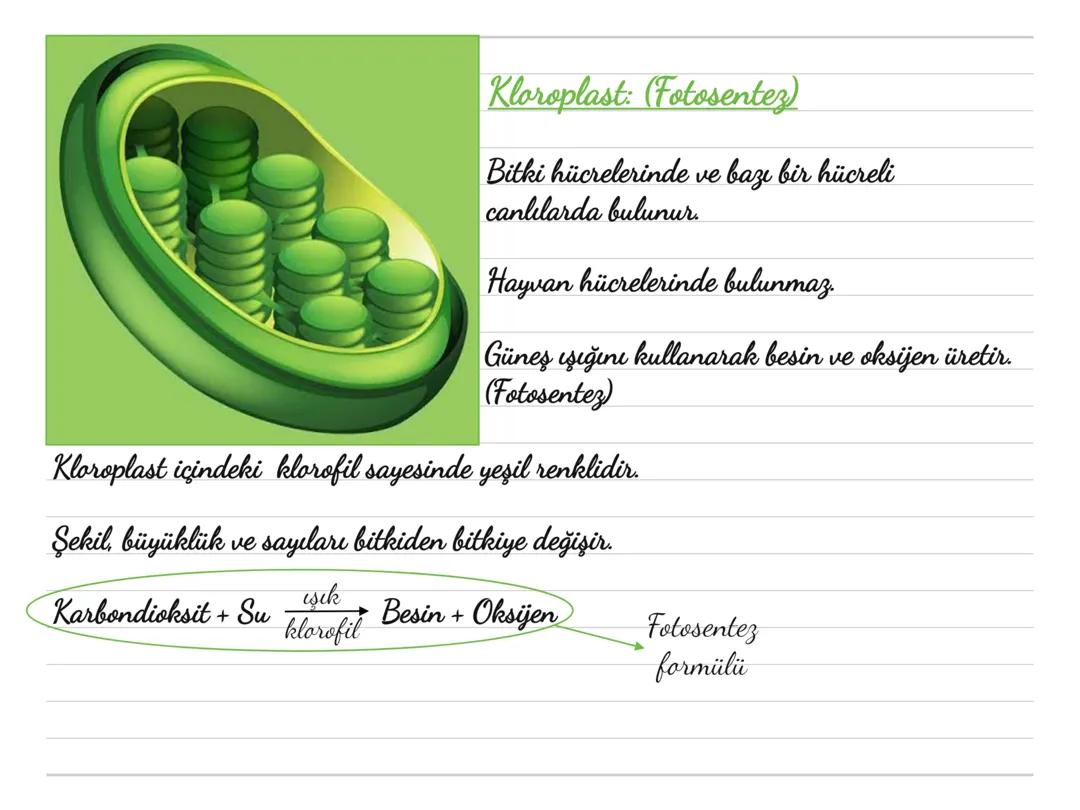 Kloroplast: (Fotosentez)
Bitki hücrelerinde ve bazı bir hücreli
canlılarda bulunur.
Hayvan hücrelerinde bulunmaz.
Güneş ışığını kullanarak besin ve oksijen üretir.
(Fotosentez)
Kloroplast içindeki klorofil sayesinde yeşil renklidir.
Şekil, büyüklük ve sayıları bitkiden bitkiye değişir.
ışık
Karbondioksit + Su → Besin + Oksijen
klorofil
Fotosentez
formülü